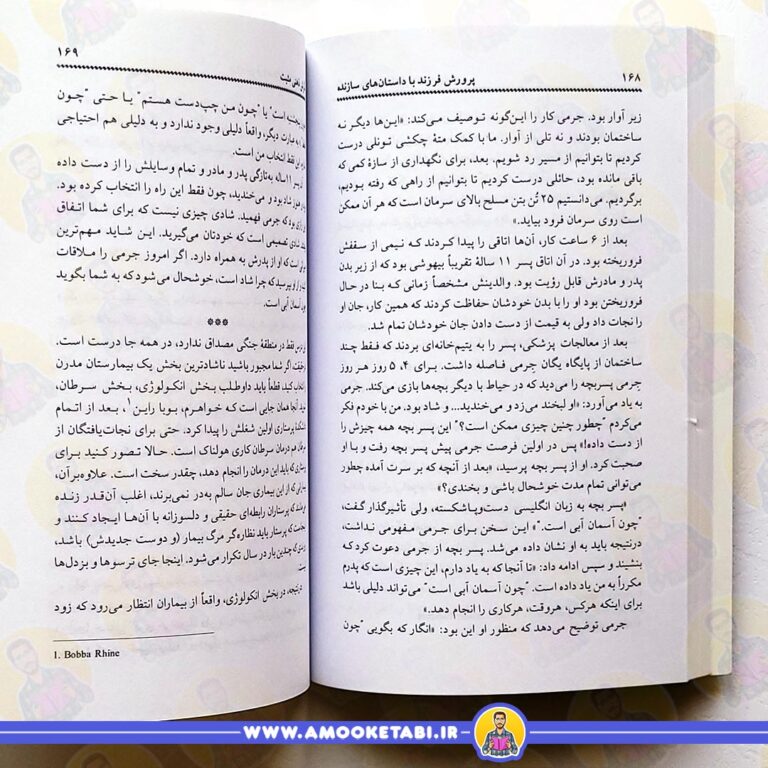 ۱۶۸
پرورش فرزند با داستان‌های سازنده
زیر آوار بود. جرمی کار را این‌گونه توصیف می‌کند: «این‌ها دیگر نه
ساختمان بودند و نه تلی از آوار. ما با کمک متهٔ چکشی تونلی درست
کردیم تا بتوانیم از مسیر رد شویم. بعد، برای نگهداری از سازهٔ کمی که
باقی مانده بود، حائلی درست کردیم تا بتوانیم از راهی که رفته بودیم،
برگردیم. می‌دانستیم ۲۵ تُن بتن مسلح بالای سرمان است که هر آن ممکن
است روی سرمان فرود بیاید.»
بعد از ۶ ساعت کار، آن‌ها اتاقی را پیدا کردند که نیمی از سقفش
فروریخته بود. در آن اتاق پسر ۱۱ سالهٔ تقریباً بیهوشی بود که از زیر بدن
پدر و مادرش قابل رؤیت بود. والدینش مشخصاً زمانی که بنا در حال
فروریختن بود او را با بدن خودشان حفاظت کردند که همین کار، جان او
را نجات داد ولی به قیمت از دست دادن جان خودشان تمام شد.
بعد از معالجات پزشکی، پسر را به یتیم‌خانه‌ای بردند که فقط چند
ساختمان از پایگاه یگان جِرمی فاصله داشت. برای ۴، ۵ روز هر روز
جِرمی پسربچه را می‌دید که در حیاط با دیگر بچه‌ها بازی می‌کند. جرمی
به یاد می‌آورد: «او لبخند می‌زد و می‌خندید... و شاد بود. من با خودم فکر
می‌کردم "چطور چنین چیزی ممکن است؟" این پسر بچه همه چیزش را
از دست داده!» پس در اولین فرصت جرمی پیش پسر بچه رفت و با او
صحبت کرد. او از پسر بچه پرسید، «بعد از آنچه که بر سرت آمده چطور
می‌توانی تمام مدت خوشحال باشی و بخندی؟»
«پسر بچه به زبان انگلیسی دست‌وپاشکسته، ولی تأثیرگذار گفت،
"چون آسمان آبی است."» این سخن برای جرمی مفهومی نداشت،
درنتیجه باید به او نشان داده می‌شد. پسر بچه از جرمی دعوت کرد که
بنشیند و سپس ادامه داد: «تا آنجا که به یاد دارم، این چیزی است که پدرم
مکرراً به من یاد داده است. "چون آسمان آبی است" می‌تواند دلیلی باشد
برای اینکه هرکس، هروقت، هرکاری را انجام دهد.»
جرمی توضیح می‌دهد که منظور او این بود: «انگار که بگویی "چون
۱۶۹
مثبت
است" یا "چون من چپ‌دست هستم" یا حتی "چون
عبارت دیگر، واقعاً دلیلی وجود ندارد و به دلیلی هم احتیاجی
فقط انتخاب من است.
۱۱ ساله به‌تازگی پدر و مادر و تمام وسایلش را از دست داده
شاد بود و می‌خندید، چون فقط این راه را انتخاب کرده بود.
بود که جرمی فهمید. شادی چیزی نیست که برای شما اتفاق
شادی تصمیمی است که خودتان می‌گیرید. این شاید مهم‌ترین
است که او از پدرش به همراه دارد. اگر امروز جرمی را ملاقات
از او بپرسید که چرا شاد است، خوشحال می‌شود که به شما بگوید
آسمان آبی است.
***
درس فقط در منطقهٔ جنگی مصداق ندارد، در همه جا درست است.
اگر شما مجبور باشید ناشادترین بخش یک بیمارستان مدرن
انتخاب کنید، قطعاً باید داوطلب بخش انکولوژی، بخش سرطان،
آنجا همان جایی است که خواهرم، بوبا راین۱، بعد از اتمام
پرستاری اولین شغلش را پیدا کرد. حتی برای نجات‌یافتگان از
هم درمان سرطان کاری هولناک است. حالا تصور کنید برای
که باید این درمان را انجام دهد، چقدر سخت است. علاوه‌برآن،
که از این بیماری جان سالم به‌در نمی‌برند، اغلب آن‌قدر زنده
که پرستاران رابطه‌ای حقیقی و دلسوزانه با آن‌ها ایجاد کنند و
که پرستار باید نظاره‌گر مرگ بیمار (و دوست جدیدش) باشد،
که چندین بار در سال تکرار می‌شود. اینجا جای ترسوها و بزدل‌ها
درنتیجه، در بخش انکولوژی، واقعاً از بیماران انتظار می‌رود که زود
1. Bobba Rhine
WWW.AMOOKETABI.IR